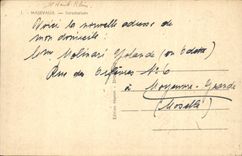 1. - MASEVAUX. -
Voici la nouvelle adresse de
mon domicile:
Mme Molinari Yolande (ou Odette)
Rue des Orfèvres No 6
à Moyeuvre-Grande
(Moselle)